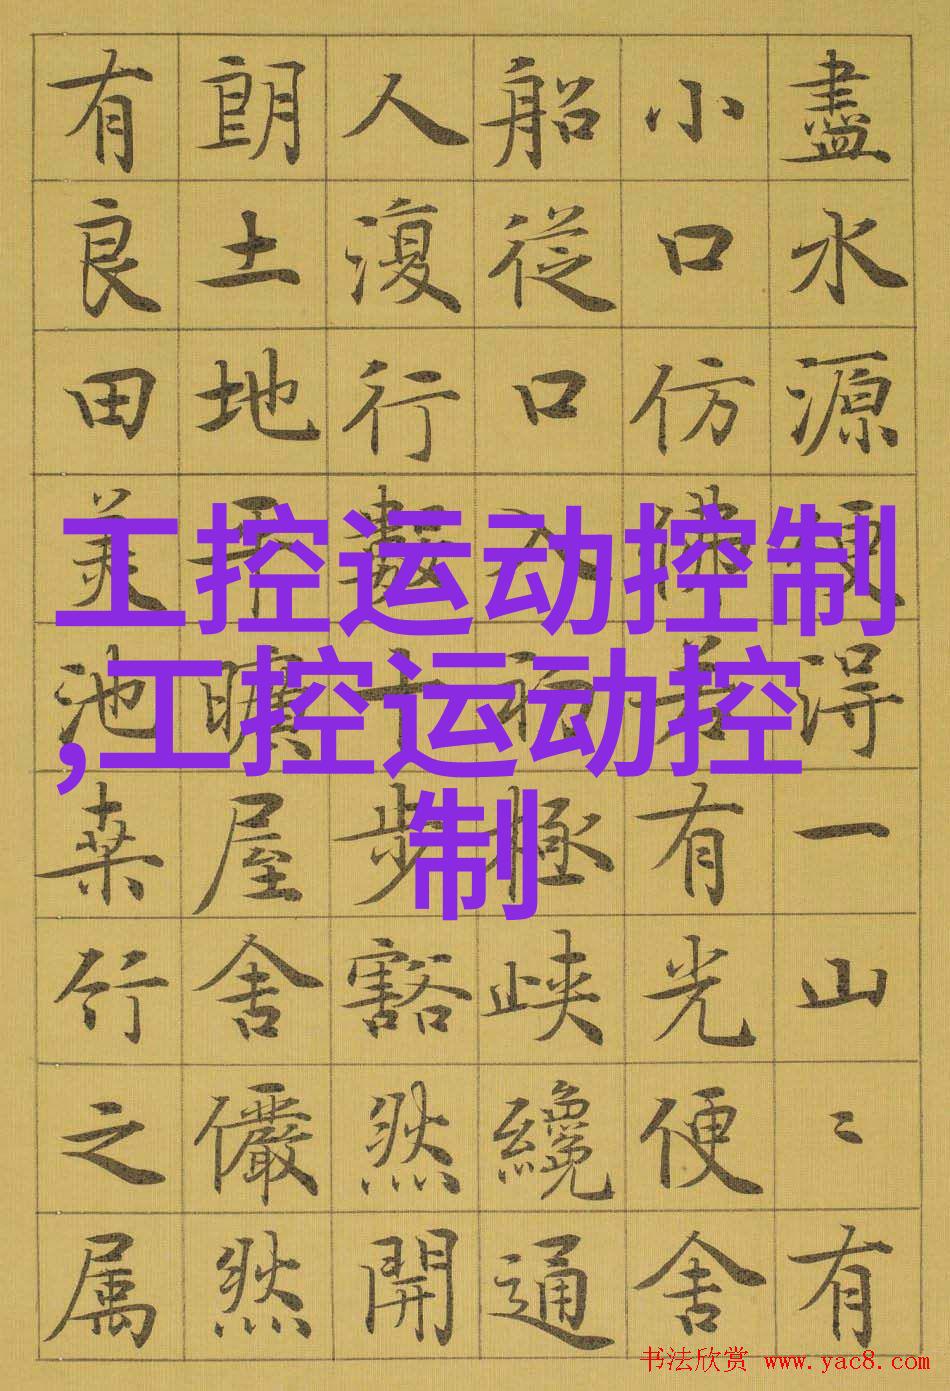 盡水源便得一山〻有
小口仿佛若有光便舍
船從口入初極峽纔通
人復行數十步豁然開
朗土地平曠屋舍儼然
有良田美池桑竹之属
工控运动控制
,工控运动控
制
书法欣赏 www.yac8.com